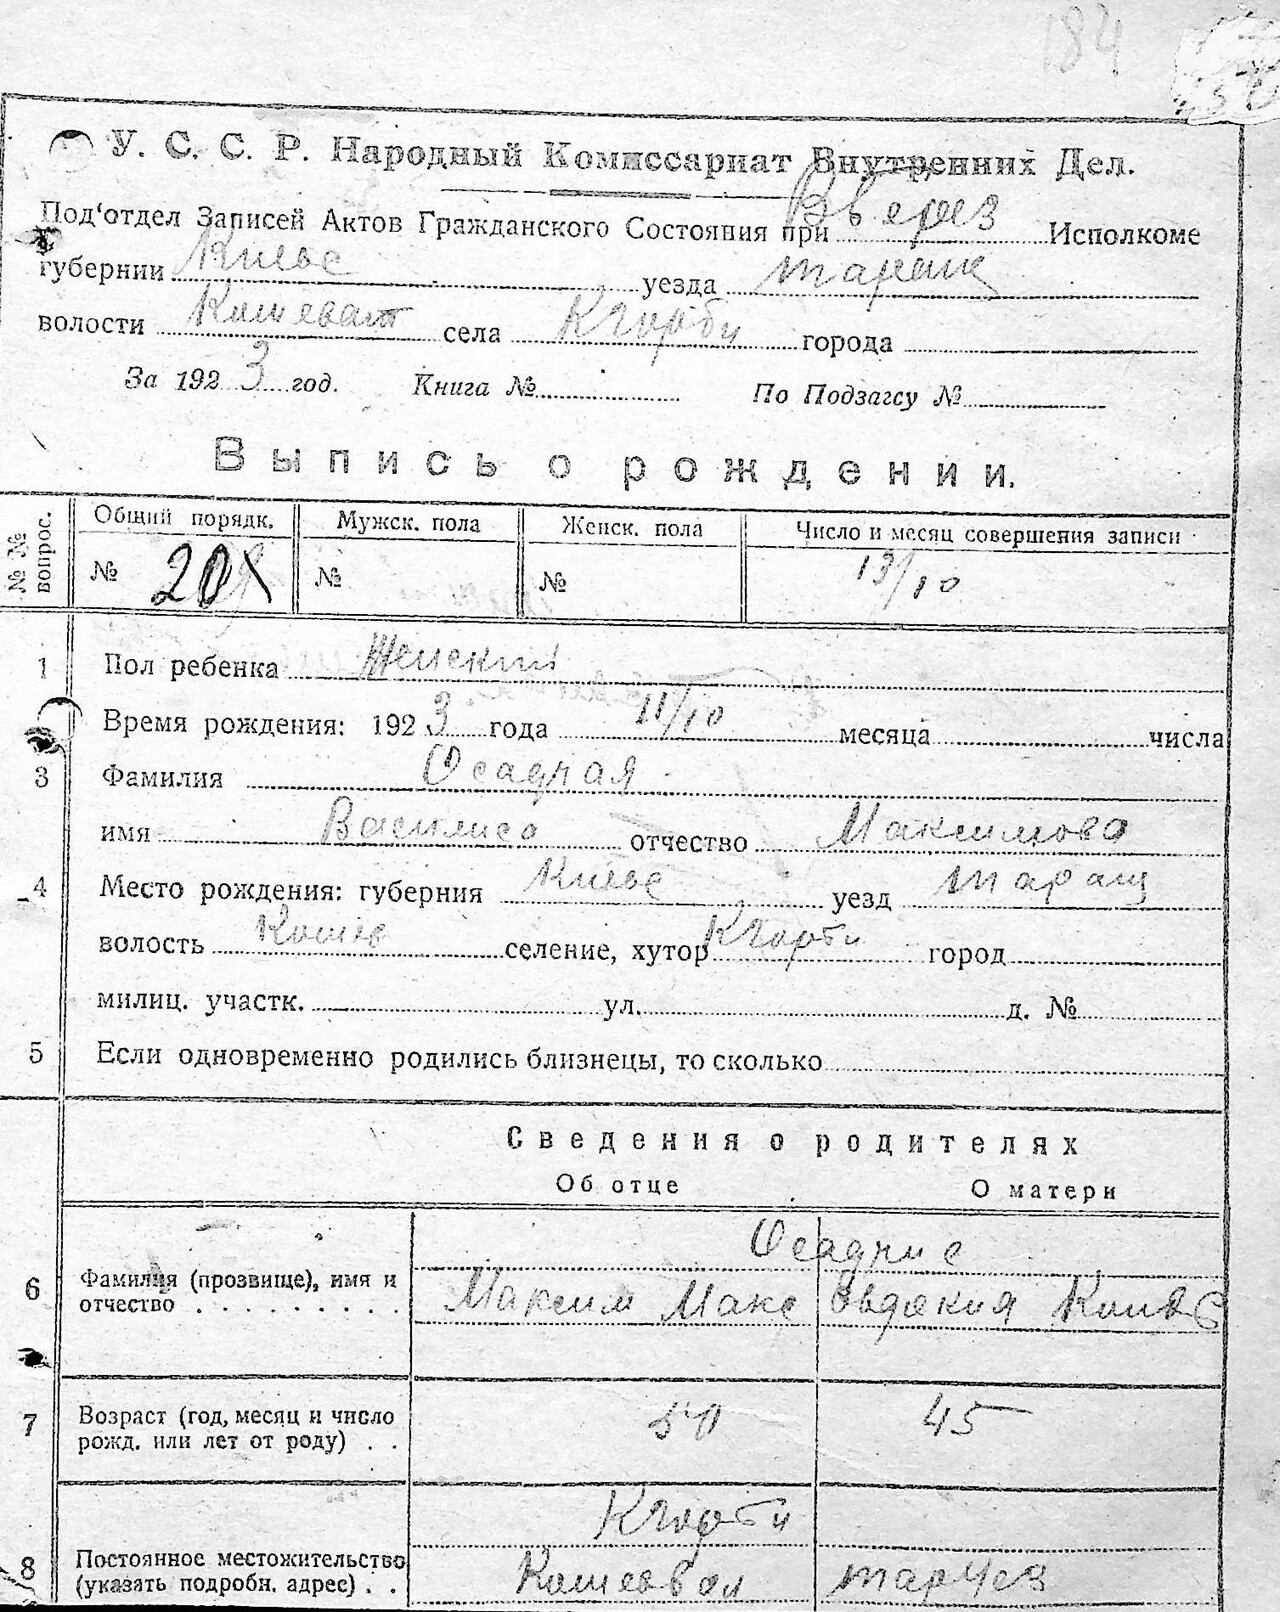 184
У. С. С. Р. Народный Комиссариат Внутренних Дел.
Под'отдел Записей Актов Гражданского Состояния при Исполкоме
губернии Киевс уезда таращ
волости Кошеват села Кгорби города
За 1923 год. Книга № По Подзагсу №
Выпись о рождении.
№ № вопрос. Общий порядк. Мужск. пола Женск. пола Число и месяц совершения записи
№ № № 13/10
1 Пол ребенка Женский
Время рождения: 1923 года 11/10 месяца числа
3 Фамилия Осадчая
имя Василиса отчество Максимова
4 Место рождения: губерния Киевс уезд таращ
волость Кошев селение, хутор Кгорби город
милиц. участк. ул. д. №
5 Если одновременно родились близнецы, то сколько
Сведения о родителях
Об отце О матери
Осадчие
6 Фамилия (прозвище), имя и отчество Максим Макс Овдокия
7 Возраст (год, месяц и число рожд. или лет от роду) 50 45
Кгорби
8 Постоянное местожительство (указать подробн. адрес)